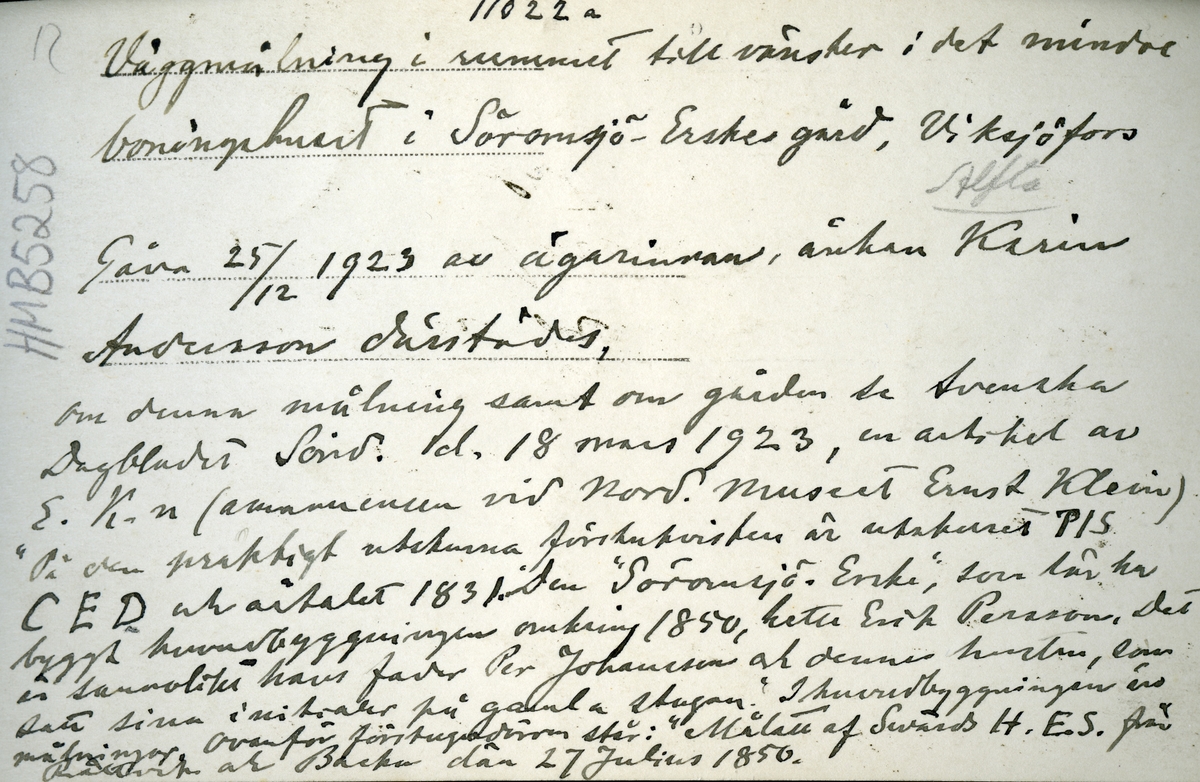 11022a
Väggmålning i rummet till vänster i det mindre
boningshuset i Söromsjö-Erskesgård, Viksjöfors
Alfta
HMB5258
Gåva 25/12 1923 av ägarinnan, änkan Karin
Andersson därstädes,
om denna målning samt om gården se Svenska
Dagbladet Sönd. d. 18 mars 1923, en artikel av
E. K-n (amanuensen vid Nord. Museet Ernst Klein)
"På den praktigt utskurna förstukvisten är utskuret P I S
C E D och årtalet 1831. Den "Söromsjö-Erske", som lär ha
byggt huvudbyggningen omkring 1850, hette Erik Persson. Det
är sannolikt hans fader Per Johansson och dennes hustru, som
satt sina initialer på gamla stugan." I huvudbyggningen äro
målningar. Ovanför förstugudörren står: "Målatt af Swärds H. E. S. från
och Backa dän 27 Julius 1850.